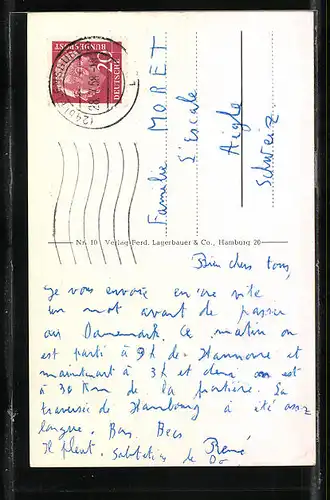 20
DEUTSCHE
BUNDESPOST
Familie MORET
L'Escale
Aigle
Schweiz
Nr. 10 Verlag Ferd. Lagerbauer & Co., Hamburg 20
Bien chers tous,
Je vous envoie encore vite
un mot avant de passer
au Danemark. Ce matin on
est parti à 9 h de Hannovre et
maintenant à 3 h et demi on est
à 30 Km de la frontière. La
traversée de Hambourg à été assez
longue. Bons Becs
Il pleut. Salutations de René